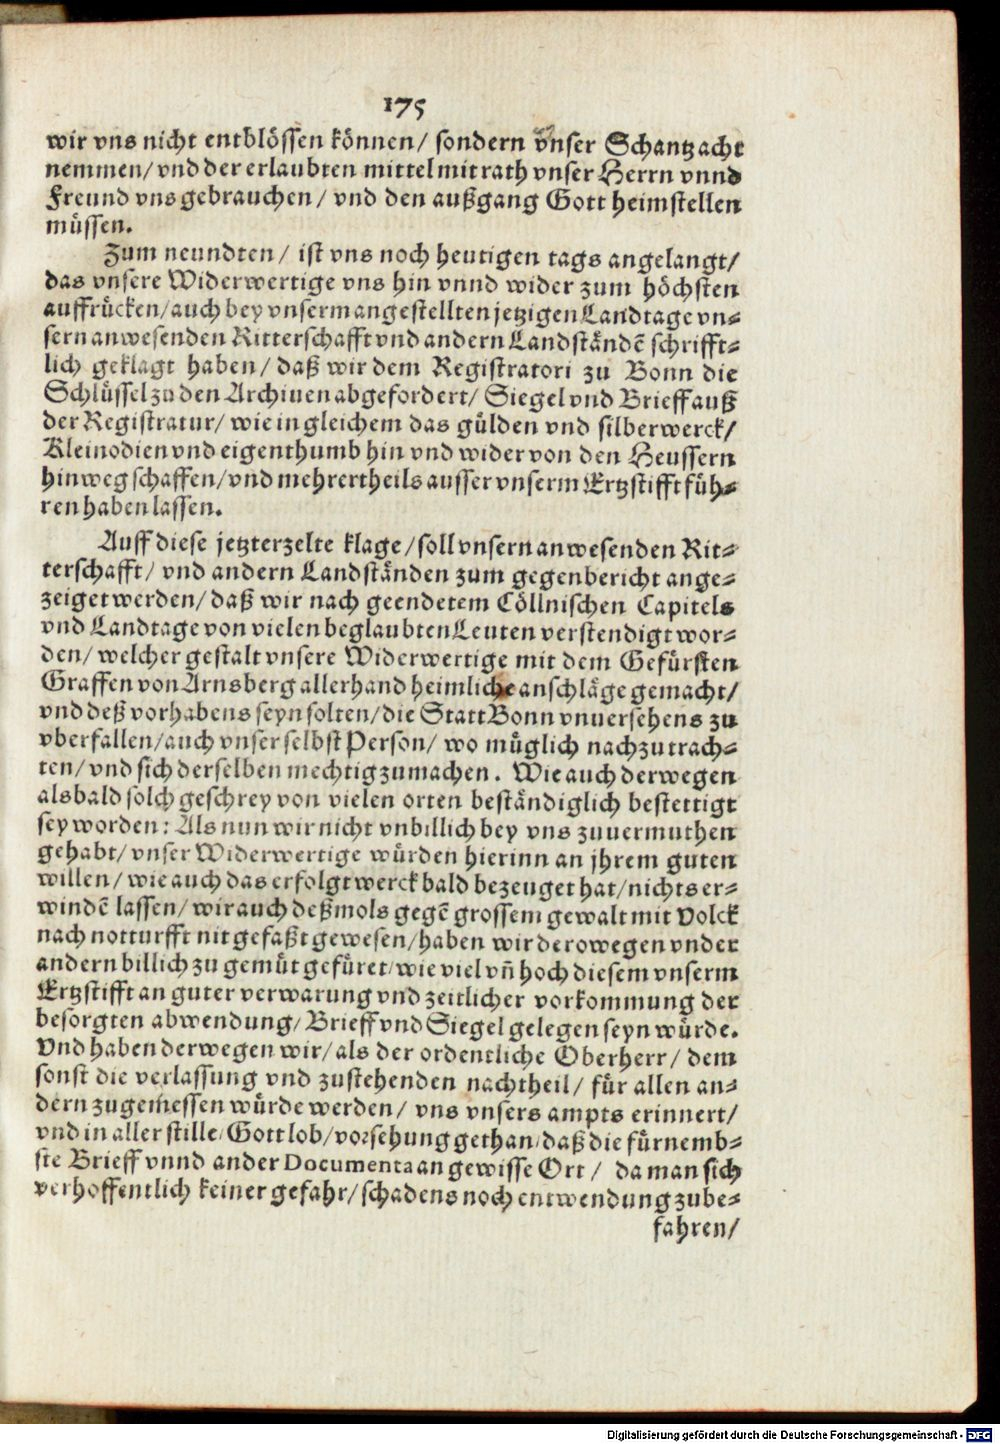 175
wir vns nicht entblössen können/ sondern vnser Schantz acht
nemmen/ vnd der erlaubten mittel mit rath vnser Herrn vnnd
Freund vns gebrauchen/ vnd den außgang Gott heimstellen
müssen.
Zum neundten/ ist vns noch heutigen tags angelangt/
das vnsere Widerwertige vns hin vnnd wider zum höchsten
auffrücken/ auch bey vnserm angestellten jetzigen Landtage vn-
sern anwesenden Ritterschafft vnd andern Landständē schrifft-
lich geklagt haben/ daß wir dem Registratori zu Bonn die
Schlüssel zu den Archiuen abgefordert/ Siegel vnd Brieff auß
der Registratur/ wie in gleichem das gülden vnd silberwerck/
Kleinodien vnd eigenthumb hin vnd wider von den Heussern
hinweg schaffen/ vnd mehrertheils ausser vnserm Ertzstifft füh-
ren haben lassen.
Auff diese jetzterzelte klage/ soll vnsern anwesenden Rit-
terschafft/ vnd andern Landständen zum gegenbericht ange-
zeiget werden/ daß wir nach geendetem Cöllnischen Capitels
vnd Landtage von vielen beglaubten Leuten verstendigt wor-
den/ welcher gestalt vnsere Widerwertige mit dem Gefürsten
Graffen von Arnsberg allerhand heimliche anschläge gemacht/
vnd deß vorhabens seyn solten/ die Statt Bonn vnuersehens zu
vberfallen/ auch vnser selbst Person/ wo müglich nachzutrach-
ten/ vnd sich derselben mechtig zumachen. Wie auch derwegen
alsbald solch geschrey von vielen orten beständiglich bestettigt
sey worden: Als nun wir nicht vnbillich bey vns zuuermuthen
gehabt/ vnser Widerwertige würden hierinn an jhrem guten
willen/ wie auch das erfolgt werck bald bezeuget hat/ nichts er-
windē lassen/ wir auch deßmols gegē grossem gewalt mit Volck
nach notturfft nit gefaßt gewesen/ haben wir derowegen vnder
andern billich zu gemüt gefüret/ wie viel vñ hoch diesem vnserm
Ertzstifft an guter verwarung vnd zeitlicher vorkommung der
besorgten abwendung/ Brieff vnd Siegel gelegen seyn würde.
Vnd haben derwegen wir/ als der ordentliche Oberherr/ dem
sonst die verlassung vnd zustehenden nachtheil/ für allen an-
dern zugemessen würde werden/ vns vnsers ampts erinnert/
vnd in aller stille/ Gott lob/ vorsehung gethan/ daß die fürnemb-
ste Brieff vnnd ander Documenta an gewisse Ort/ da man sich
verhoffentlich keiner gefahr/ schadens noch entwendung zube-
fahren/
Digitalisierung gefördert durch die Deutsche Forschungsgemeinschaft - DFG